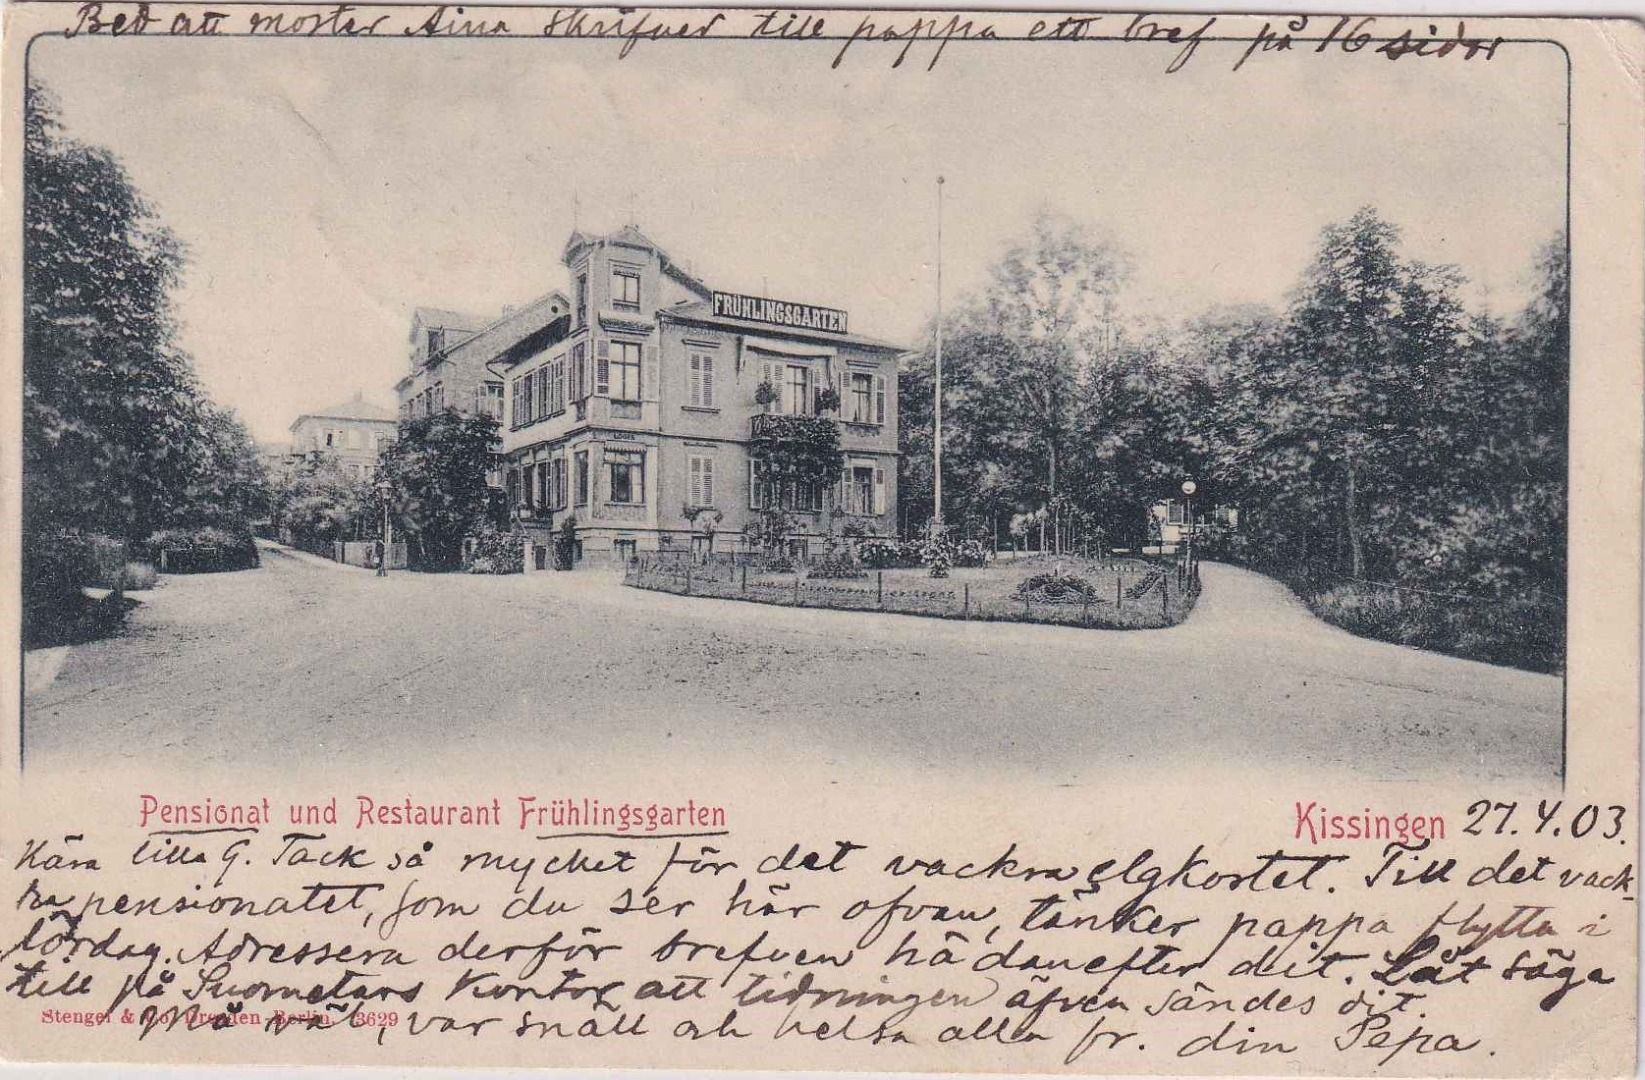 Bed att moster Aina skrifver till pappa ett bref på 16 sidor
FRÜHLINGSGARTEN
Pensionat und Restaurant Frühlingsgarten
Kissingen 27.4.03.
Kära lilla G. Tack så mycket för det vackra elgkortet. Till det vack-
ra pensionatet, som du ser här ofvan, tänker pappa flytta i
lördag. Adressera derför brefven hädanefter dit. Låt säga
till på Suometars kontor att tidningen äfven sändes dit.
Må väl, var snäll och helsa alla fr. din Pepa.
Stengel & Co. Dresden Berlin. 13629